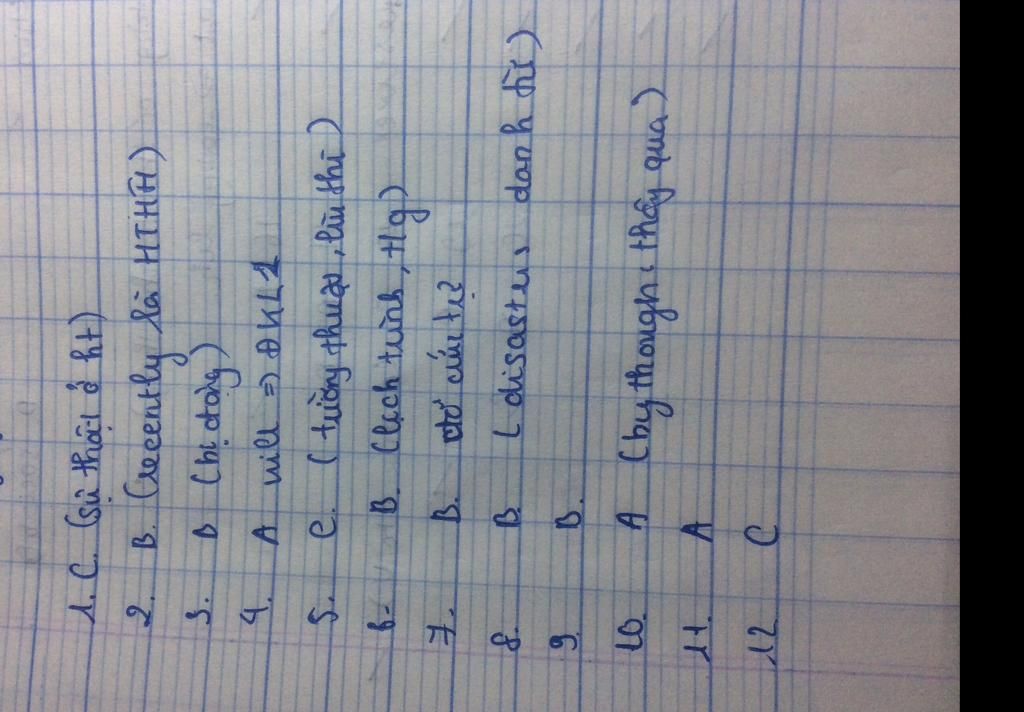 1. C. (sự thật ở ht)
2. B. (recently là HTHT)
3. B (bị động)
4. A will => ĐKL1
5. C. (tường thuật, lùi thì)
6. B. (lịch trình, Hg)
7. B.
8. B (disasters danh từ)
9 B.
10. A (by though: thấy qua)
11. A
12 C